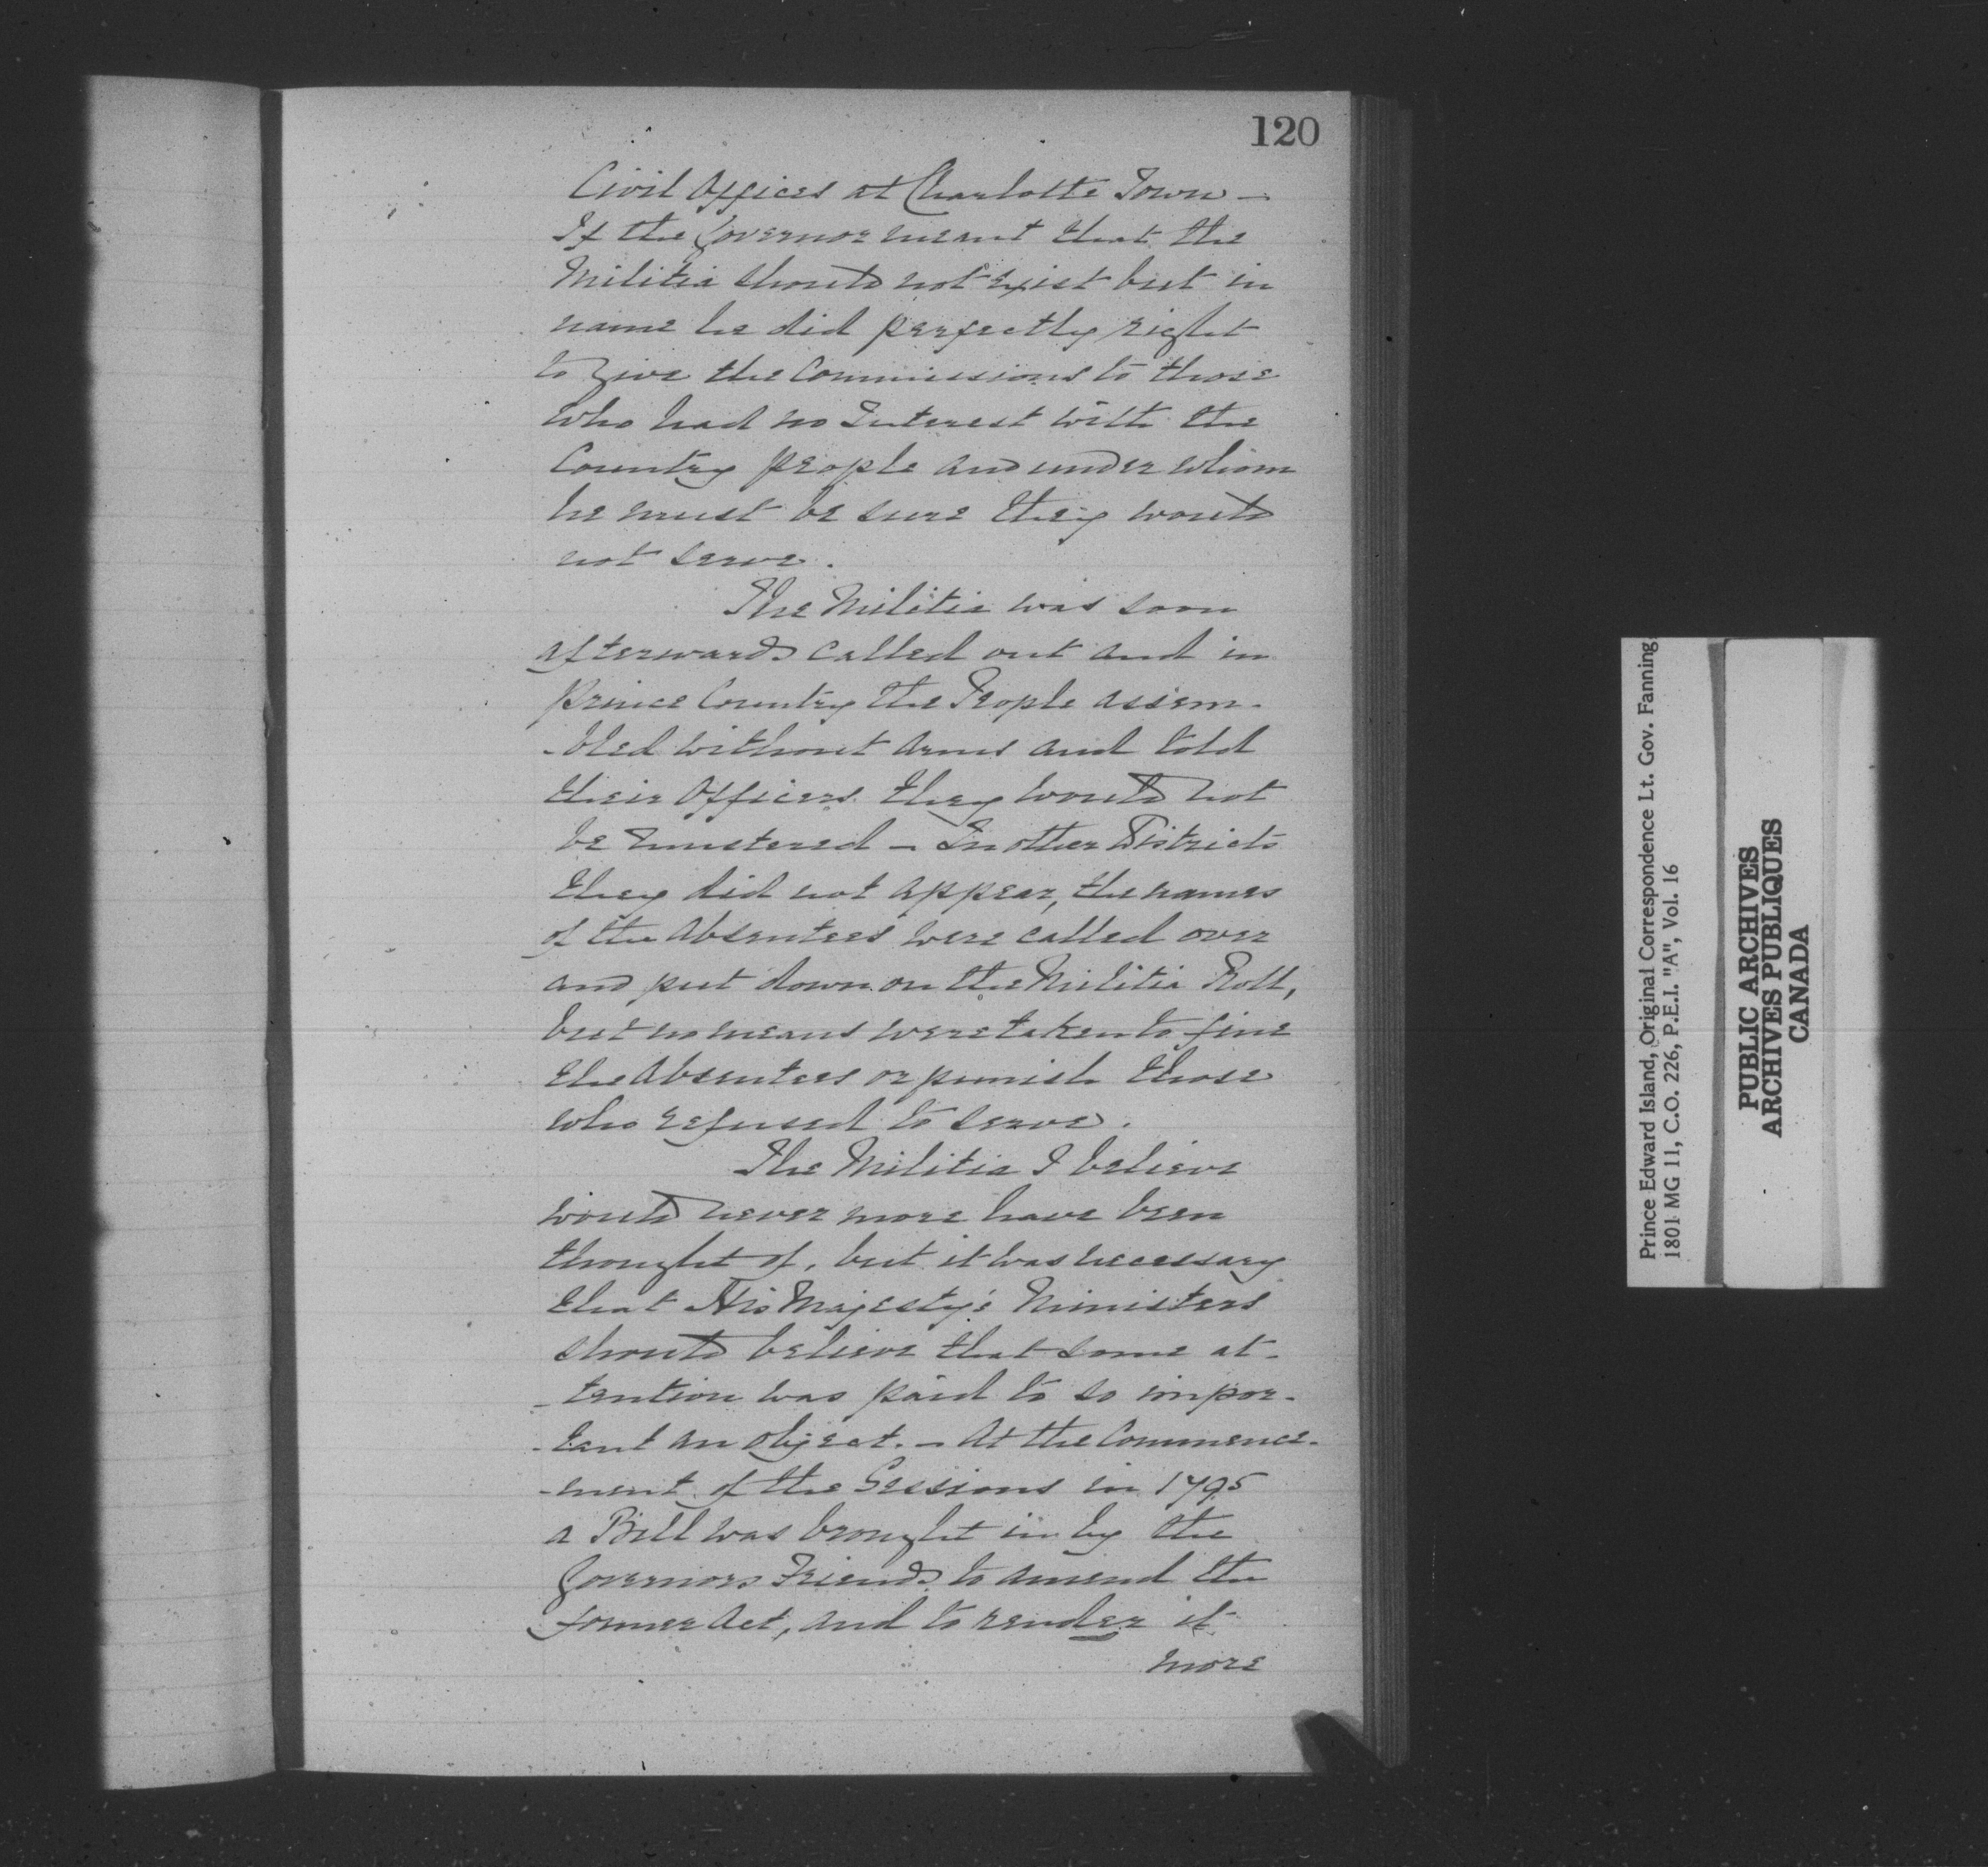 120
Civil Offices at Charlotte Town —
If the Governor meant that the
Militia should not exist but in
name he did perfectly right
to give the Commissions to those
who had no Interest with the
Country people and under whom
he must be sure they would
not serve.
The Militia was soon
afterwards called out and in
Prince Country the People assem-
-bled without Arms and told
their Officers they would not
be mustered — In other Districts
they did not appear, the names
of the Absentees were called over
and put down on the Militia Roll,
but no means were taken to fine
the Absentees or punish those
who refused to serve.
The Militia I believe
would never more have been
thought of, but it was necessary
that His Majesty's Ministers
should believe that some at-
-tention was paid to so impor-
-tant an object. — At the Commence-
-ment of the Sessions in 1795
a Bill was brought in by the
Governors Friends to amend the
former Act, and to render it
more
Prince Edward Island, Original Correspondence Lt. Gov. Fanning
1801 MG 11, C.O. 226, P.E.I. "A", Vol. 16
PUBLIC ARCHIVES
ARCHIVES PUBLIQUES
CANADA